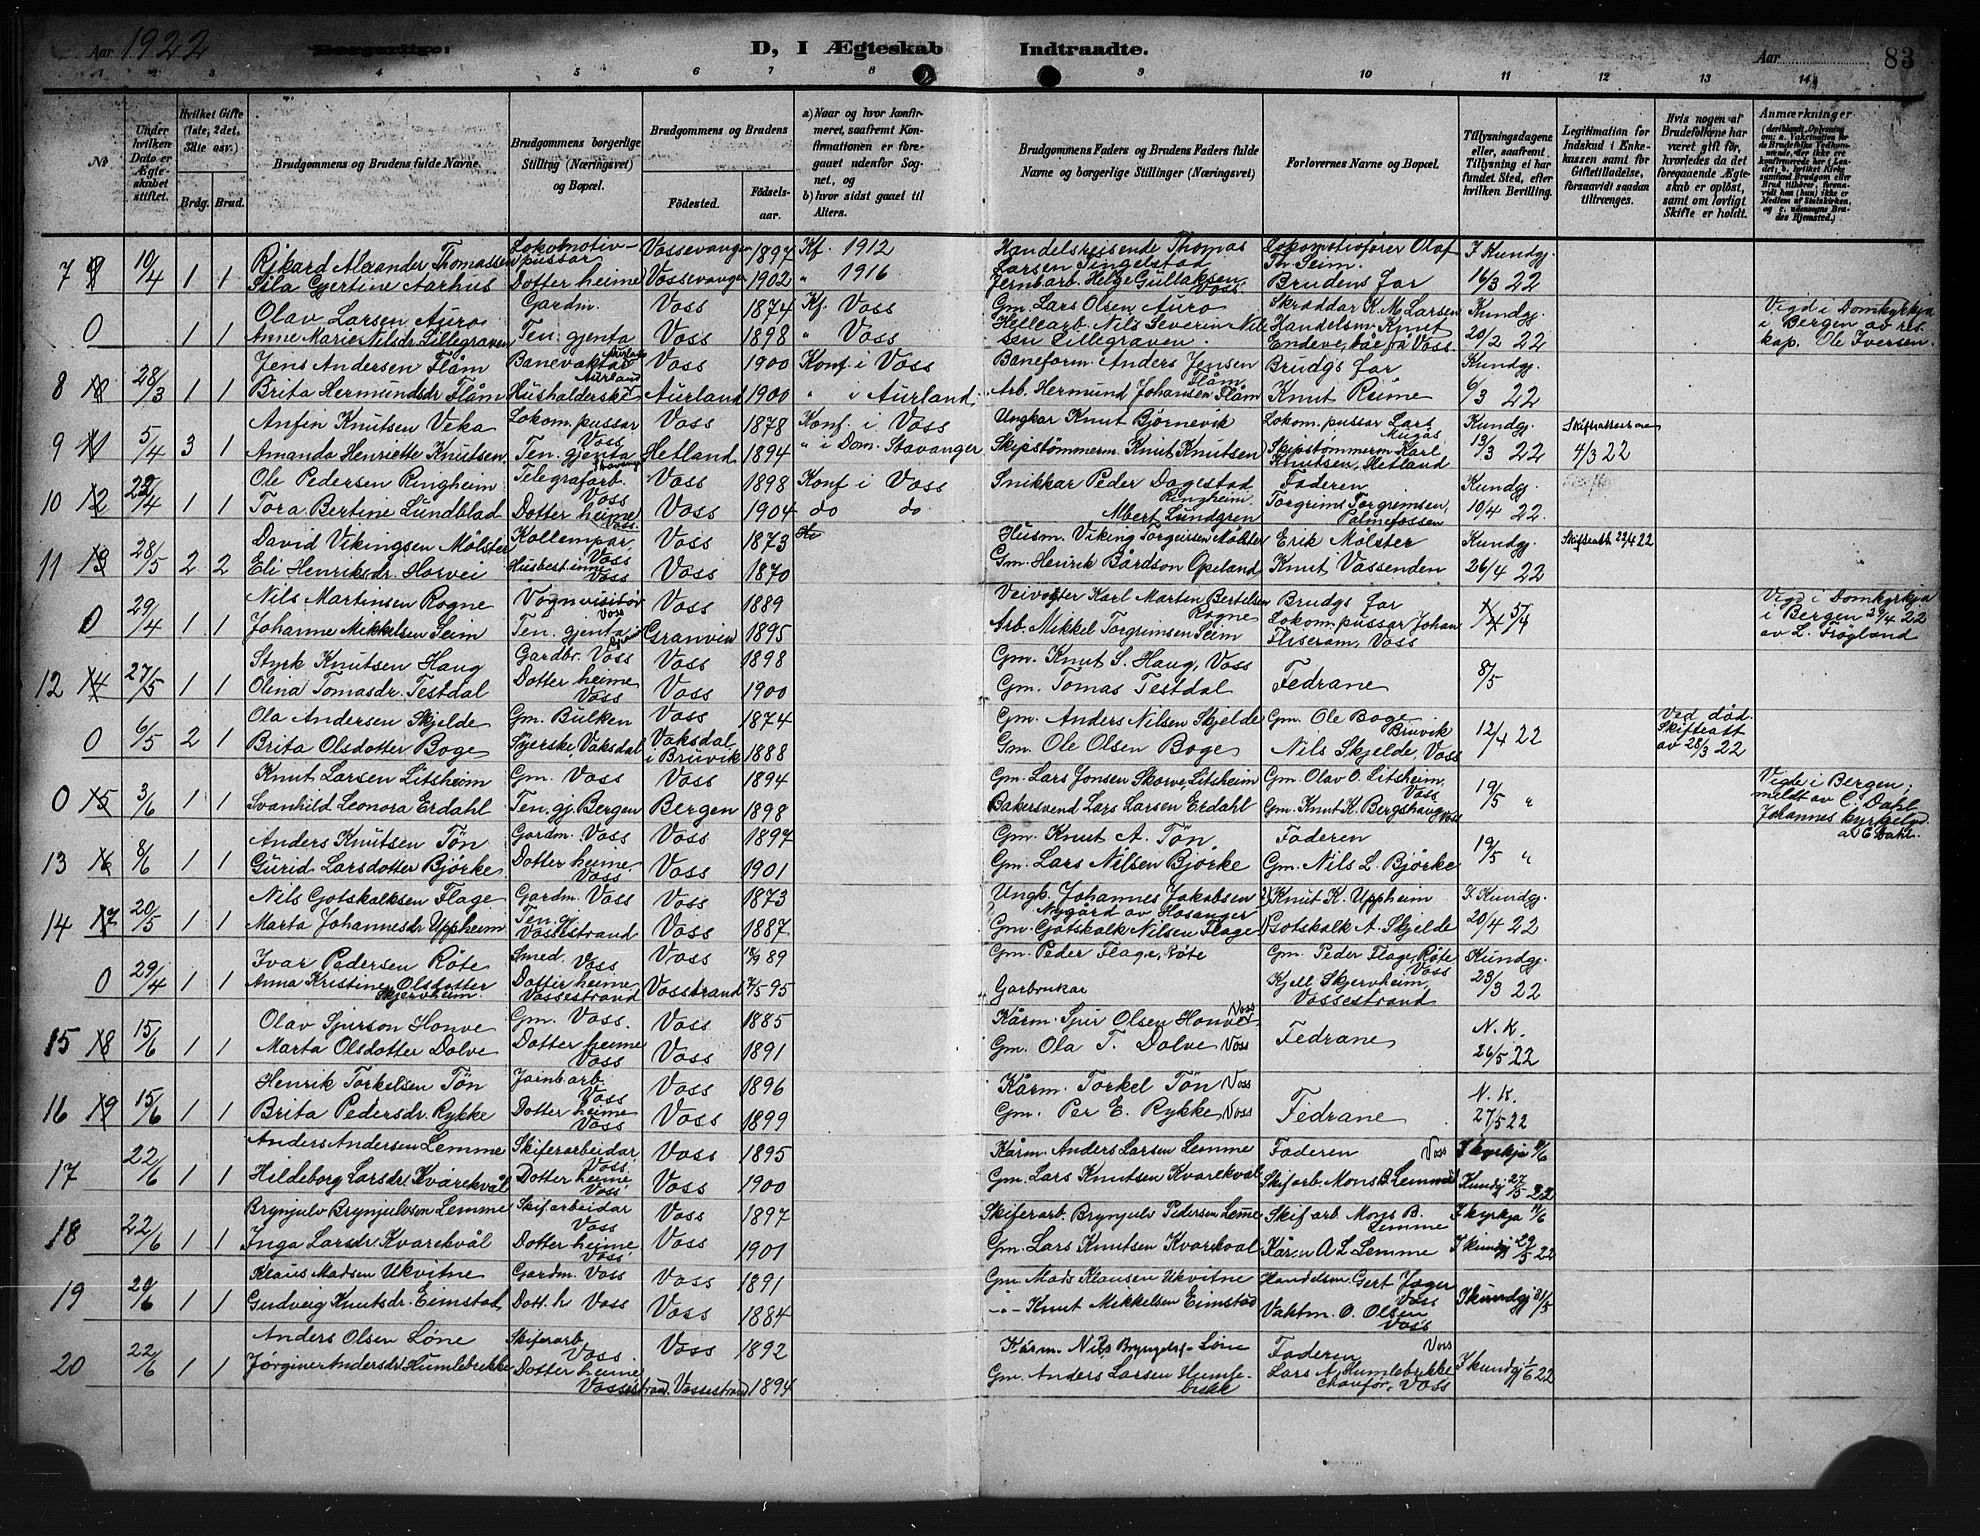 Aar 1922 Borgerlige. D, I Ægteskab Indtraadte. Aar 83
1 2 3 4 5 6 7 8 9 10 11 12 13 14
No
Under hvilken Dato er Ægteskabet stiftet.
Hvilket Gifte (1ste, 2det, 3die osv.)
Brdg. Brud.
Brudgommens og Brudens fulde Navne.
Brudgommens borgerlige Stilling (Næringsvei) og Bopæl.
Brudgommens og Brudens
Fødested.
Fødselsaar.
a) Naar og hvor konfirmeret, saafremt Konfirmationen er foregaaet udenfor Sognet, og
b) hvor sidst gaaet til Alters.
Brudgommens Faders og Brudens Faders fulde Navne og borgerlige Stillinger (Næringsvei)
Forlovernes Navne og Bopæl.
Tillysningsdagene eller, saafremt Tillysning ei har fundet Sted, efter hvilken Bevilling.
Legitimation for Indskud i Enkekassen samt for Giftetilladelse, forsaavidt saadan tiltrænges.
Hvis nogen af Brudefolkene har været gift før, hvorledes da det foregaaende Ægteskab er opløst, samt om lovligt Skifte er holdt.
Anmærkninger
7 10/4 1 1 Rikard Alexander Thomassen Lokomotivpussar Vossevangen 1897 Kf. 1912 Handelsreisende Thomas Larsen Tingelstad Lokomotivfører Olaf Th. Seim. I Kundgj.
Sila Gjertine Aarhus Dotter heime Vossevangen 1902 " 1916 Jernbarb. Helge Gullaksen Voss. Brudens far 16/3 22
0 1 1 Olav Larsen Auro Gardm. Voss 1874 Kf. Voss Gm. Lars Olsen Auro Skræddar K. M. Larsen Kundgj. Vigd i Domkyrkja
Anne Marie Nilsdr. Lillegraven Ten. gjenta Voss 1898 " Voss Hellearb. Nils Severin Nilsen Lillegraven. Handelsm. Knut Endeve, båe på Voss. 20/2 22 i Bergen av res. kap. Ole Iversen.
8 28/3 1 1 Jens Andersen Flåm Banevaktar Aurland Voss 1900 Konf. i Voss Baneform. Anders Jensen Flåm Brudgs far Kundgj.
Brita Hermundsdr. Flåm Husholderske Aurland 1900 " i Aurland Arb. Hermund Johansen Flåm Knut Reime 6/3 22
9 5/4 3 1 Anfin Knutsen Veka Lokom. pussar Voss Voss 1878 Konf. i Voss Ungkar Knut Bjørnevik Lokom. pussar Lars Mugås Kundgj.
Amanda Henriette Knutsen Ten. gjenta Stavanger Hetland 1894 " i Dom. Stavanger Skipstømmerm. Knut Knutsen Skipstømmerm. Karl Knutsen, Hetland 13/3 22 4/3 22
10 22/4 Ole Pedersen Ringheim Telegrafarb. Voss Voss 1898 Konf. i Voss Snikkar Peder Dagestad Ringheim Faderen Kundgj.
1 1 Tora Bertine Lundblad Dotter heime Voss. Voss 1904 do do Albert Lundgren Torgrims Torgrimsen, Palmefossen 10/4 22.
11 28/5 2 2 David Vikingsen Mølster Voss Voss 1873 Husm. Viking Torgeirsen Mølster Erik Mølster Kundgj. Skifteatt 22/4 22
Eli Henriksdr. Horvei Husbestinne Voss Voss 1870 Gm. Henrik Bårdson Opeland Knut Vassenden 26/4 22
0 29/4 1 1 Nils Martinsen Rogne Vognvisitør Voss Voss 1889 Veivogter Karl Marten Bertelsen Rogne Brudgs far Vigd i Domkyrkja
Johanne Mikkelsen Seim Ten. gjenta Granvin 1895 Arb. Mikkel Torgrimsen Seim Lokom. pussar Johan Fliseram, Voss 5/4 i Bergen 29/4 22 av L. Frøgland
12 27/5 1 1 Styrk Knutsen Haug Gardbr. Voss Voss 1898 Gm. Knut S. Haug, Voss Fedrane 8/5
Olina Tomasdr. Testdal Dotter heime Voss Voss 1900 Gm. Tomas Testdal
0 6/5 2 1 Ola Andersen Skjelde Gm. Bulken Voss 1874 Gm. Anders Nilsen Skjelde Gm. Ole Boge Bruvik 12/4 22 Ved død. Skifteatt
Brita Olsdotter Boge Syerske, Vaksdal Vaksdal i Bruvik 1888 Gm. Ole Olsen Boge Nils Skjelde, Voss av 28/3 22
0 3/6 1 1 Knut Larsen Litsheim Gm. Voss Voss 1894 Gm. Lars Jonsen Skorve, Litsheim Gm. Olav O. Litsheim, Voss 19/5 " Vigde i Bergen,
Svanhild Leonora Erdahl Ten. gj. Bergen Bergen 1898 Bakersvend Lars Larsen Erdahl Gm. Knut K. Bergshaug Voss meldt av C. Dahl Johannes kyrkjelyd
13 8/6 1 1 Anders Knutsen Tøn Gardm. Voss Voss 1897 Gm. Knut A. Tøn Faderen 19/5 "
Gurid Larsdotter Bjørke Dotter heime. Voss Voss 1901 Gm. Lars Nilsen Bjørke Gm. Nils L. Bjørke
14 20/5 1 1 Nils Gotskalksen Flage Gardm. Voss Voss 1873 Ungk. Johannes Jakobsen Nygård av Hosanger Knut K. Uppheim I. Kundgj.
Marta Johannesdr. Uppheim Ten. gj. Vossestrand Voss 1887 Gm. Gotskalk Nilsen Flage Gotskalk A. Skjelde 20/4 22
0 29/4 1 1 Ivar Pedersen Røte Smed. Voss Voss 89 Gm. Peder Flage, Røte Gm. Peder Flage, Røte Voss Kundgj.
Anna Kristine Olsdotter Skjervheim. Dotter heime, Vossestrand Vosstrand 95 Garbrukar Kjell Skjervheim, Vossestrand 23/3 22
15 15/6 1 1 Olav Sjurson Honve Gm. Voss. Voss 1885 Kårm. Sjur Olsen Honve Voss Fedrane N. K.
Marta Olsdotter Dolve Dotter heime Voss Voss 1891 Gm. Ola T. Dolve Voss 26/5 22
16 15/6 1 1 Henrik Torkelsen Tøn Jarnb. arb. Voss Voss 1896 Kårm. Torkel Tøn Voss Fedrane N. K.
Brita Pedersdr. Rykke Dotter heime Voss Voss 1899 Gm. Per E. Rykke Voss 27/5 22
17 22/6 1 1 Anders Andersen Lemme Skiferarbeidar Voss. Voss 1895 Kårm. Anders Larsen Lemme Faderen Voss I kyrkja
Hildeborg Larsdr. Kvarekvål Dotter heime Voss Voss 1900 Gm. Lars Knutsen Kvarekval Skifarb. Mons B. Lemme I Kundgj 27/5 22
18 22/6 1 1 Brynjulv Brynjulvson Lemme Skifarbeidar Voss Voss 1897 Skiferarb. Brynjulv Pedersen Lemme Skifarb. Mons B. Lemme I kyrkja
Inga Larsdr. Kvarekvål Dotter heime Voss Voss 1901 Gm. Lars Knutsen Kvarekval Kårm A L Lemme I kundgj 29/5 22
19 29/6 1 1 Klaus Madsen Ukvitne Gardm. Voss Voss 1891 Gm. Mads Klausen Ukvitne Handelsm. Gert Jager Voss I kundgj 31/5
Gudveig Knutsdr. Eimstad Dott. h Voss Voss 1884 -"- Knut Mikkelsen Eimstad Vaktm. O. Olsen Voss
20 22/6 1 1 Anders Olsen Løne Skiferarb. Voss Voss 1892 Kårm. Nils Brynjelfs. Løne Faderen Voss
Jørgine Andersdr. Humlebrekke Dotter heime Vossestrand Vossestrand 1894 Gm. Anders Larsen Humlebrekk Lars A. Humlebrekke Chauför, Voss I kundgj 1/6 22